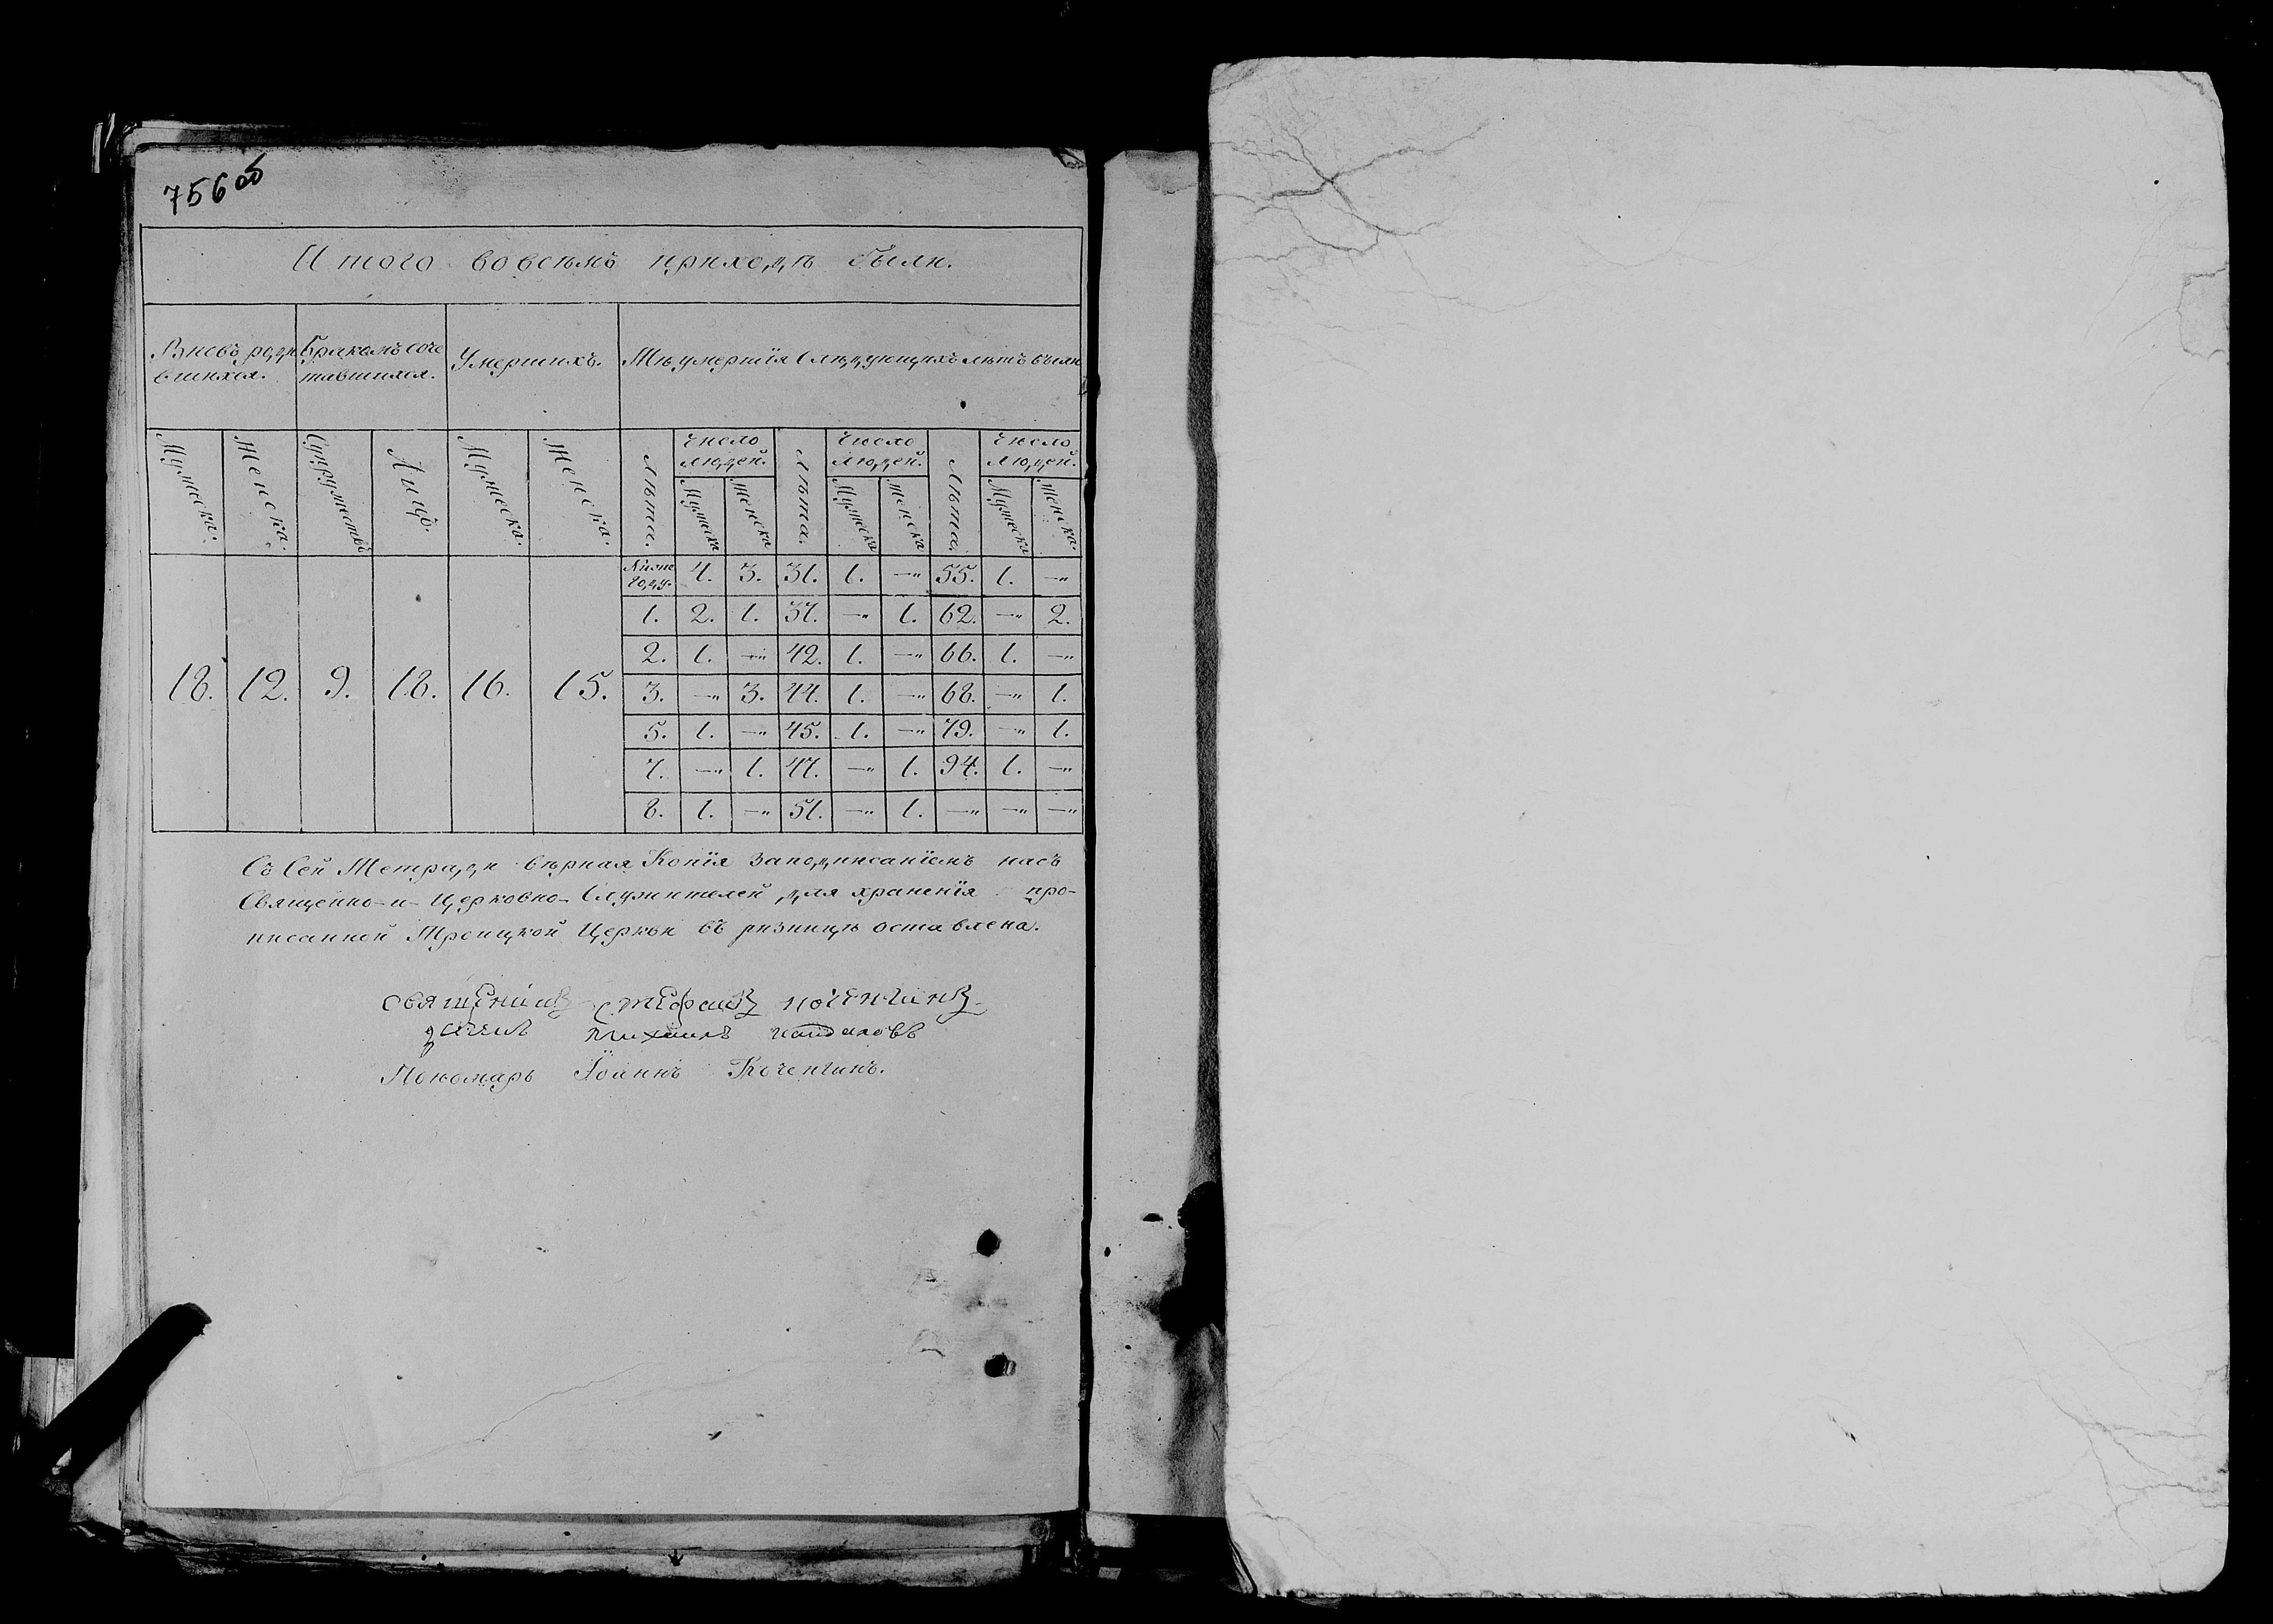 756 об
Итого вовсемъ приходѣ были.
Вновь роди Бракомъ соче Умершихъ. Тѣ умершія слѣдующихъ лѣтъ были
вшихся. тавшихся.
Мужеска. Женска. Супружествъ Лицъ. Мужеска. Женска. Лѣта. Число людей. Лѣта. Число людей. Лѣта. Число людей.
Мужеска Женска Мужеска Женска Мужеска Женска.
Ниже году. 4. 3. 31. 1. —" 55. 1. —"
1. 2. 1. 37. —" 1. 62. —" 2.
2. 1. —" 42. 1. —" 66. 1. —"
18. 12. 9. 18. 16. 15. 3. —" 3. 44. 1. —" 68. —" 1.
5. 1. —" 45. 1. —" 79. —" 1.
7. —" 1. 47. —" 1. 94. 1. —"
8. 1. —" 51. —" 1. —" —" —"
Съ Сей Тетради вѣрная Копія заподписаніемъ насъ
Священно-и-Церковно-Служителей для храненія про-
писанной Троицкой Церкви въ ризницѣ оставлена.
священникъ стефанъ коченгинъ
михаилъ
Пономарь Іоаннъ Коченгинъ.